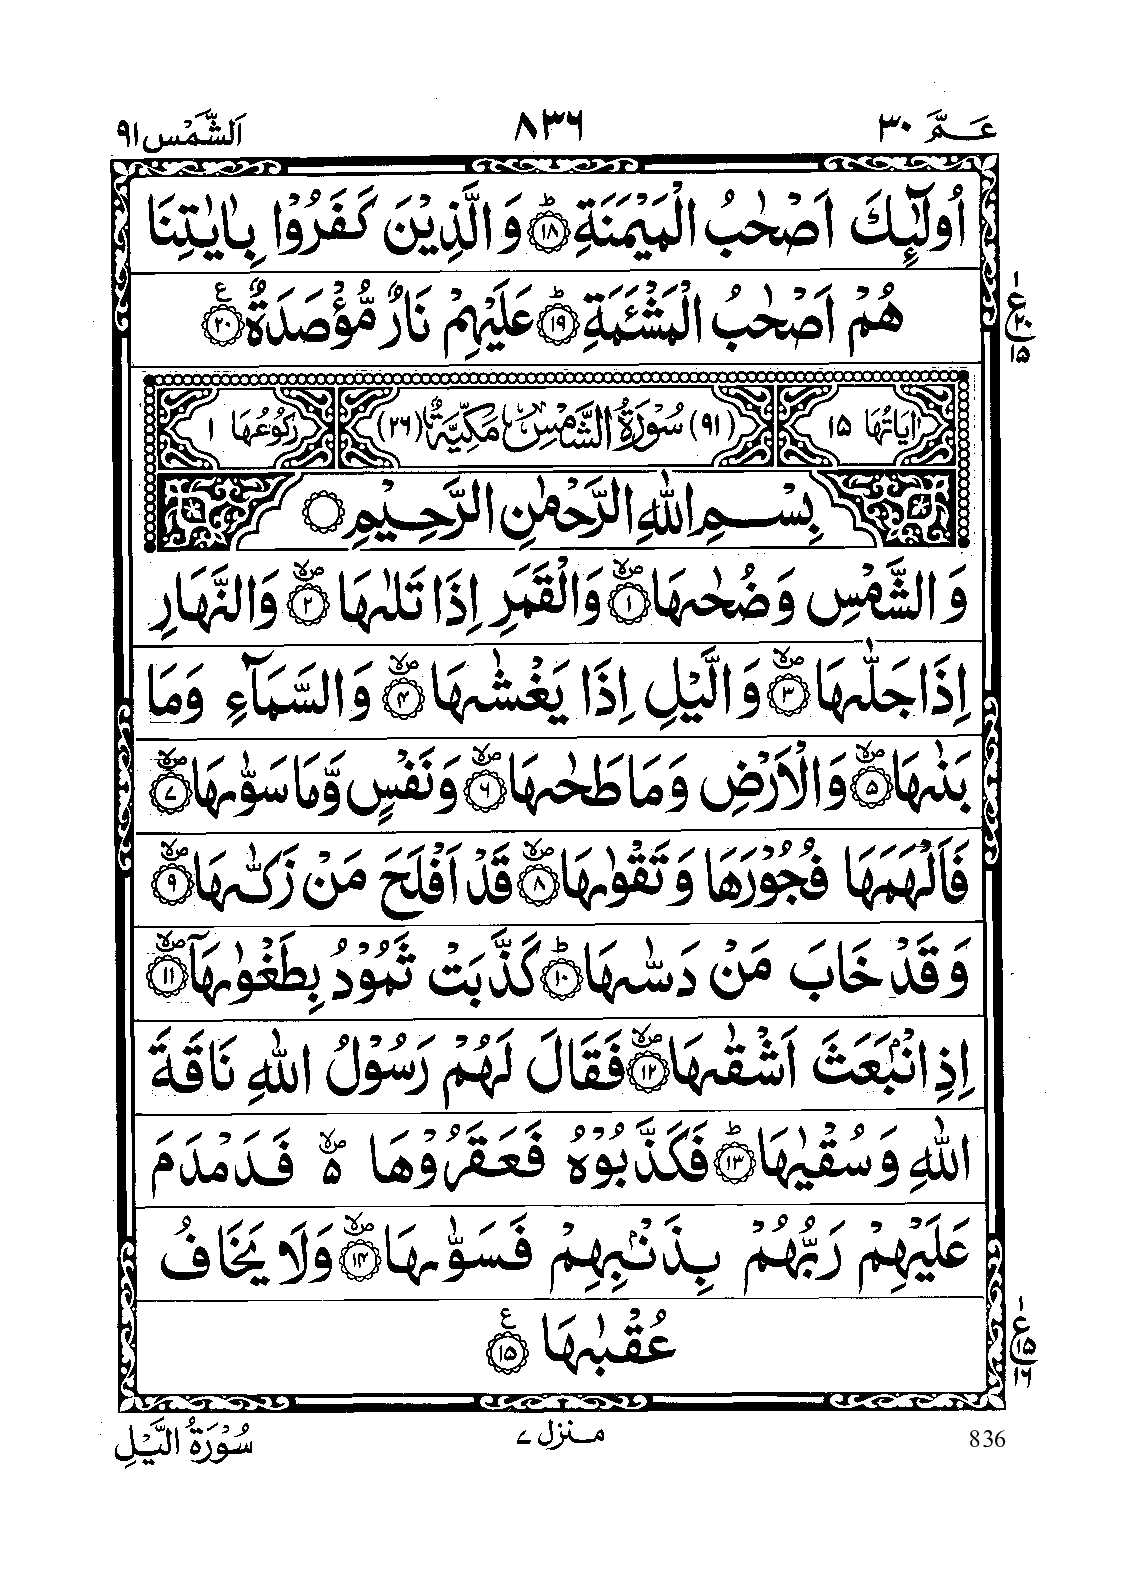 عـمّ ٣٠
٨٣٦
اَلشَّمْس ٩١
اُولٰٓئِكَ اَصْحٰبُ الْمَيْمَنَةِ ؕ‏ ﴿١٨﴾ وَ الَّذِيْنَ كَفَرُوْا بِاٰيٰتِنَا
هُمْ اَصْحٰبُ الْمَشْئَمَةِ ؕ‏ ﴿١٩﴾ عَلَيْهِمْ نَارٌ مُّؤْصَدَةٌ ﴿٢٠﴾ ع
١
ع
٢٠
١٥
اٰيَاتُهَا ١٥
(٩١) سُوْرَةُ الشَّمْسِ مَكِّيَّةٌ (٢٦)
رُكُوْعُهَا ١
بِسْمِ اللّٰهِ الرَّحْمٰنِ الرَّحِيْمِ
وَ الشَّمْسِ وَضُحٰىهَا ۙ‏ ﴿١﴾ وَالْقَمَرِ اِذَا تَلٰىهَا ۙ‏ ﴿٢﴾ وَالنَّهَارِ
اِذَا جَلّٰىهَا ۙ‏ ﴿٣﴾ وَالَّيْلِ اِذَا يَغْشٰىهَا ۙ‏ ﴿٤﴾ وَالسَّمَآءِ وَمَا
بَنٰىهَا ۙ‏ ﴿٥﴾ وَالْاَرْضِ وَمَا طَحٰىهَا ۙ‏ ﴿٦﴾ وَنَفْسٍ وَّمَا سَوّٰىهَا ۙ‏ ﴿٧﴾
فَاَلْهَمَهَا فُجُوْرَهَا وَتَقْوٰىهَا ۙ‏ ﴿٨﴾ قَدْ اَفْلَحَ مَنْ زَكّٰىهَا ۙ‏ ﴿٩﴾
وَقَدْ خَابَ مَنْ دَسّٰىهَا ؕ‏ ﴿١٠﴾ كَذَّبَتْ ثَمُوْدُ بِطَغْوٰىهَاۤ ۙ‏ ﴿١١﴾
اِذِ انْۢبَعَثَ اَشْقٰىهَا ۙ‏ ﴿١٢﴾ فَقَالَ لَهُمْ رَسُوْلُ اللّٰهِ نَاقَةَ
اللّٰهِ وَسُقْيٰهَا ؕ‏ ﴿١٣﴾ فَكَذَّبُوْهُ فَعَقَرُوْهَا ۙ۵ فَدَمْدَمَ
عَلَيْهِمْ رَبُّهُمْ بِذَنْۢبِهِمْ فَسَوّٰىهَا ۙ‏ ﴿١٤﴾ وَلَا يَخَافُ
عُقْبٰهَا ﴿١٥﴾ ع
١
ع
١٥
١٦
سُوْرَةُ الَّيْلِ
منزل ٧
836